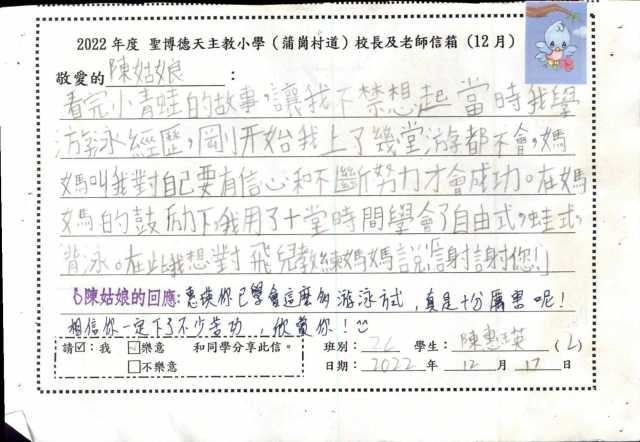 2022 年度 聖博德天主教小學（蒲崗村道）校長及老師信箱（12月）
敬愛的 陳姑娘 ：
看完小青蛙的故事，讓我不禁想起當時我學
游泳經歷，剛開始我上了幾堂游都不會，媽
媽叫我對自己要有信心和不斷努力才會成功。在媽
媽的鼓励下，我用了十堂時間學會了自由式，蛙式，
背泳。在此我想對飛兒教練媽媽説「謝謝您!」
陳姑娘的回應：惠瑛你已學會這麼多游泳方式，真是十分厲害呢！
相信你一定下了不少苦功，欣賞你！
請☑：我 ☑樂意 和同學分享此信。 班別： 2L 學生： 陳惠瑛 (2)
□不樂意 日期： 2022 年 12 月 17 日